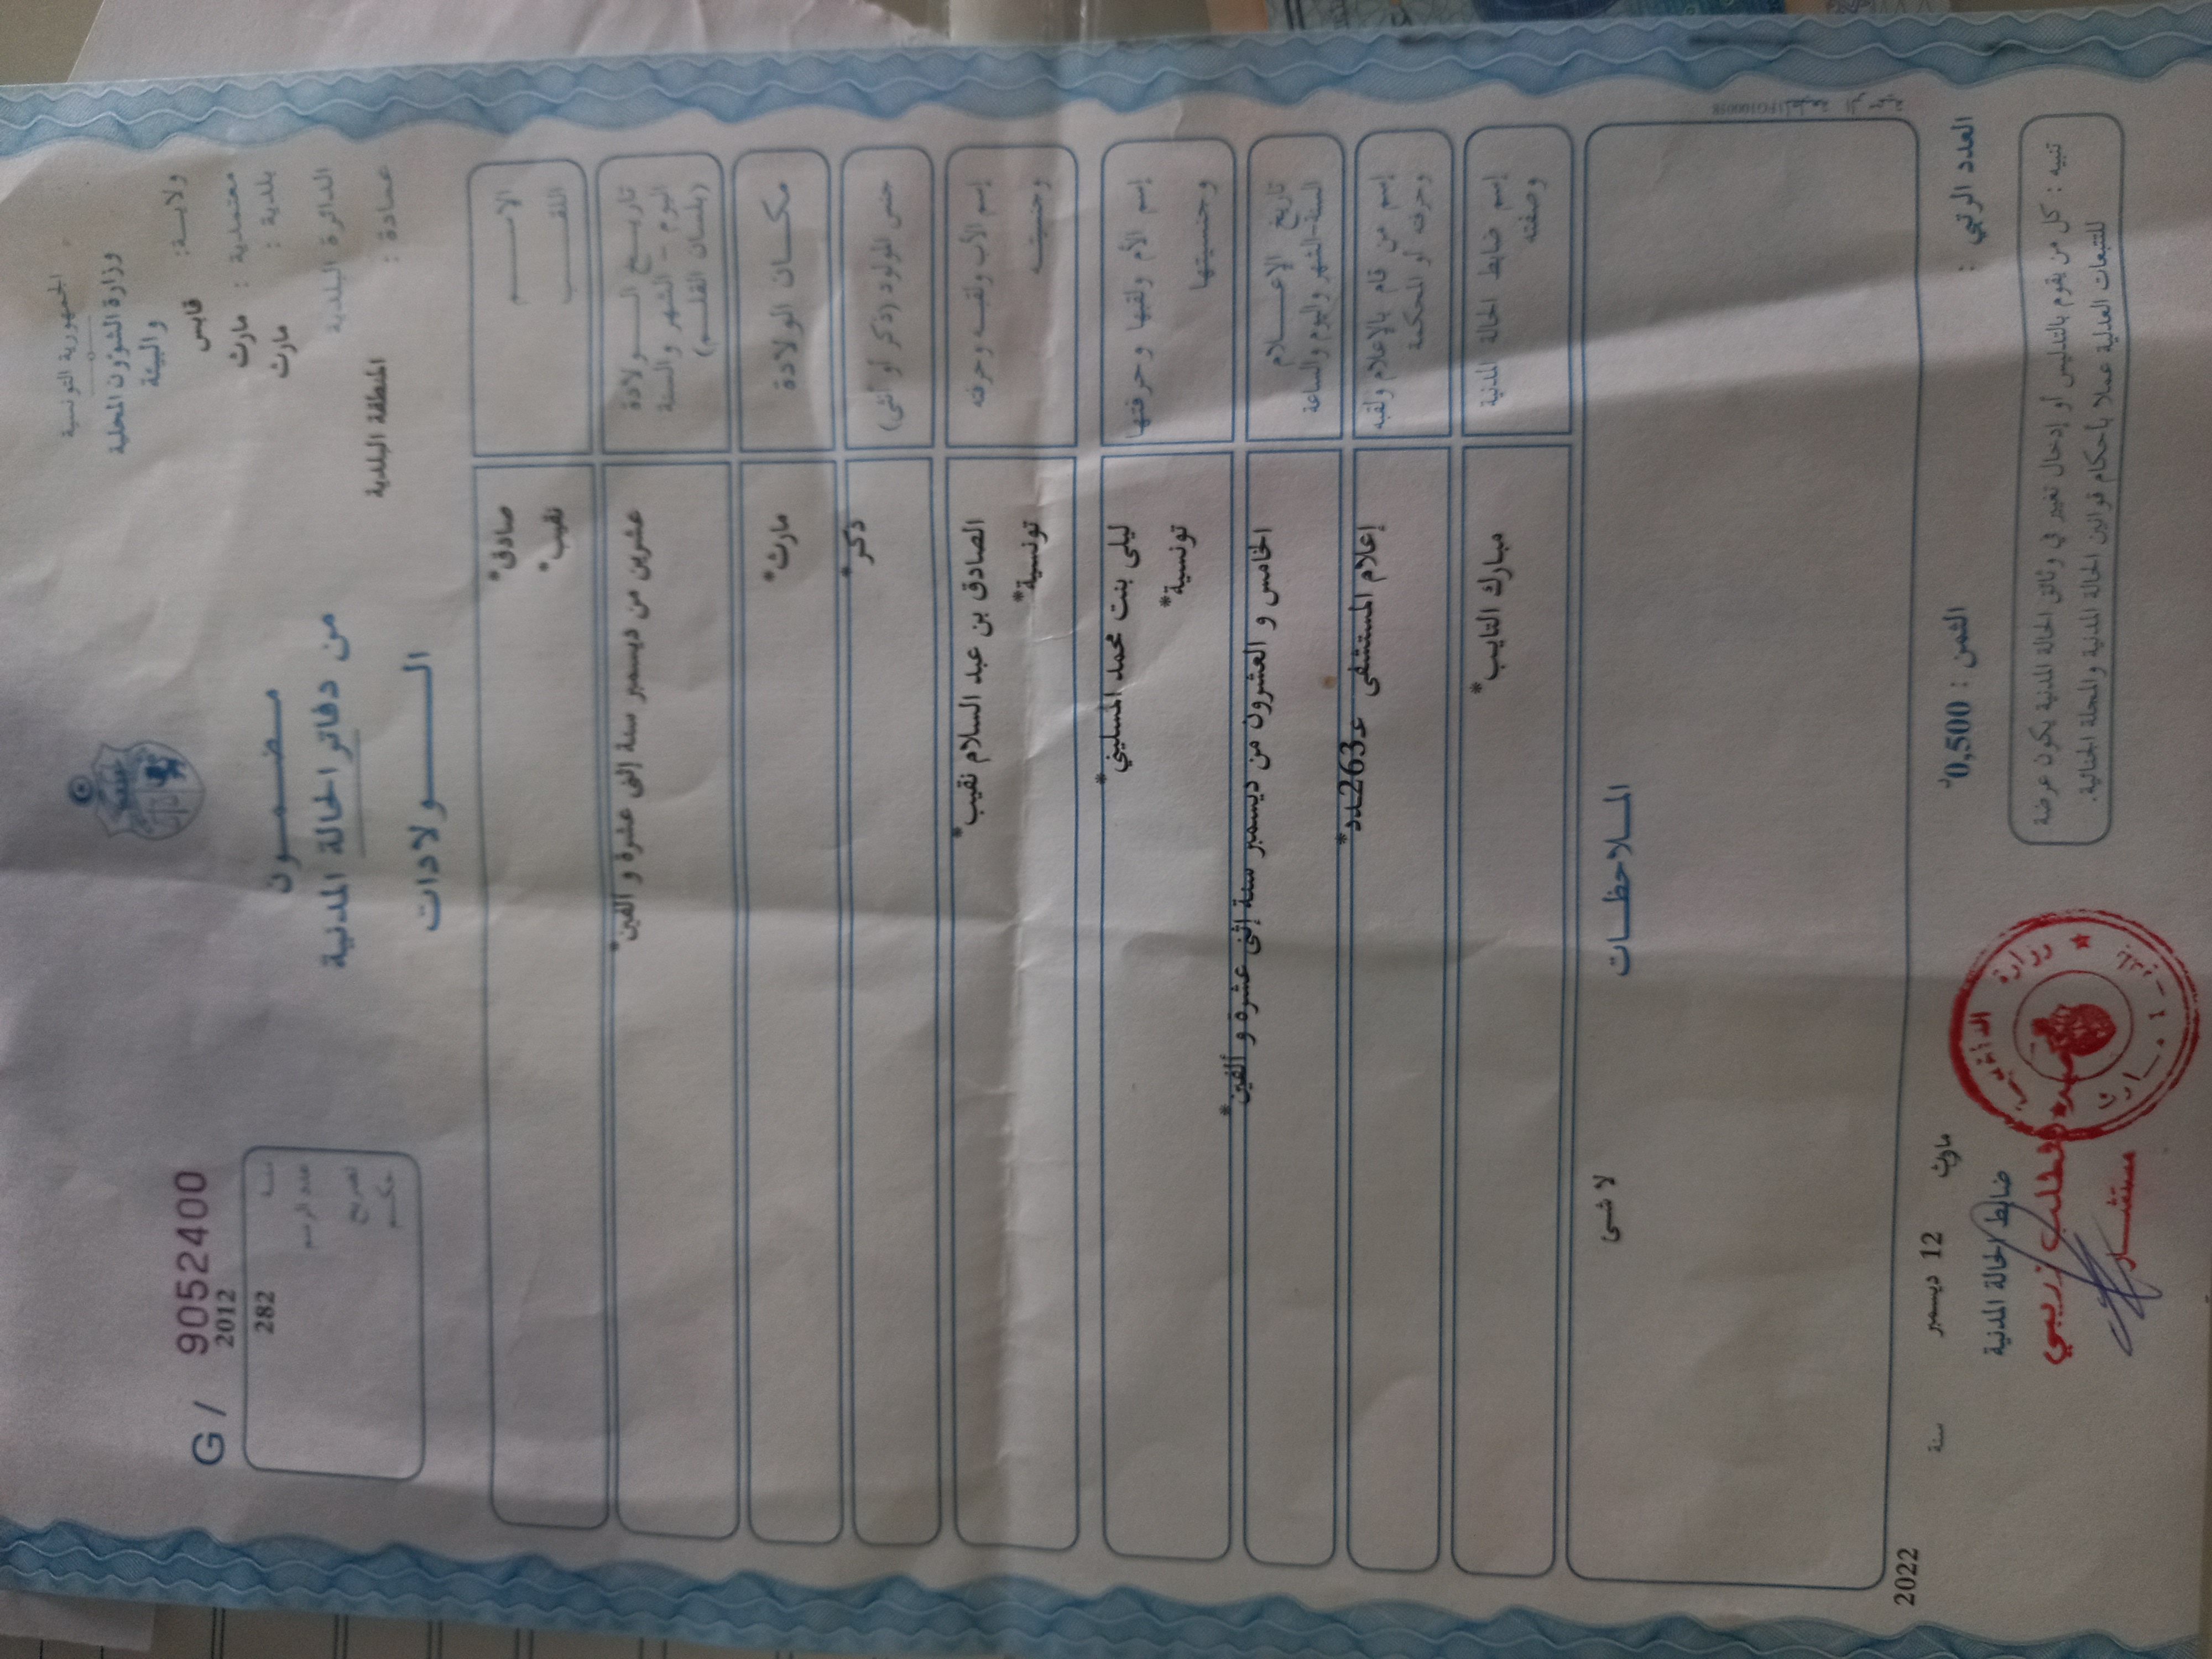 الجمهورية التونسية
وزارة الشؤون المحلية
والبيئة
ولاية: قابس
معتمدية : مارث
بلدية : مارث
الدائرة البلدية
عمادة : المنطقة البلدية
G / 9052400
سنة 2012
عدد الرسم 282
تصريح
حكم
مضمون
من دفاتر الحالة المدنية
الولادات
الاسم صادق*
اللقب نقيب*
تاريخ الولادة
اليوم - الشهر والسنة
(بلسان القلم)
عشرين من ديسمبر سنة إثنى عشرة و ألفين*
مكان الولادة مارث*
جنس المولود (ذكر أو أنثى) ذكر*
إسم الأب ولقبه وحرفته الصادق بن عبد السلام نقيب*
وجنسيته تونسية*
إسم الأم ولقبها وحرفتها ليلى بنت محمد المسليني*
وجنسيتها تونسية*
تاريخ الإعلام
السنة-الشهر واليوم والساعة
الخامس و العشرون من ديسمبر سنة إثنى عشرة و ألفين*
إسم من قام بالإعلام ولقبه
وحرفته أو المحكمة
إعلام المستشفى عـ263ـدد*
إسم ضابط الحالة المدنية
وصفته
مبارك التايب*
الملاحظات
لا شىء
العدد الرتبي :
الثمن : 0,500د
مارث 12 ديسمبر سنة 2022
ضابط الحالة المدنية
تنبيه : كل من يقوم بالتدليس أو إدخال تغيير في وثائق الحالة المدنية يكون عرضة
للتتبعات العدلية عملا بأحكام قوانين الحالة المدنية والمجلة الجنائية.
وزارة الداخلية
مستشار